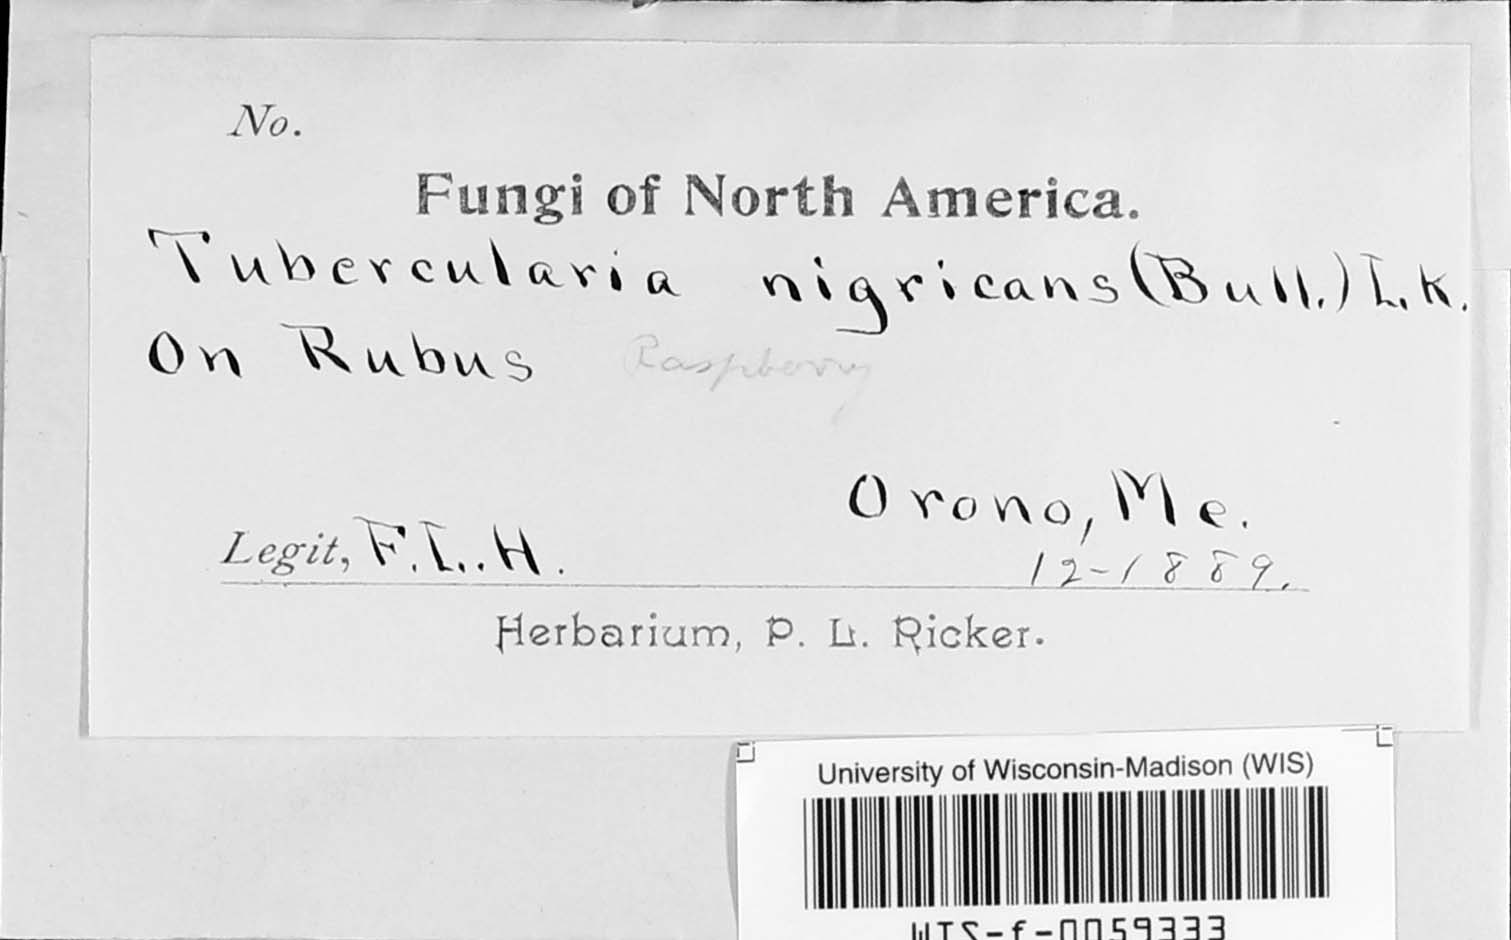 No.
Fungi of North America.
Tubercularia nigricans (Bull.) L.K.
On Rubus Raspberry
Orono, Me.
Legit, F.L.H.
12-1889.
Herbarium, P. L. Ricker.
University of Wisconsin-Madison (WIS)
WIS-f-0059333